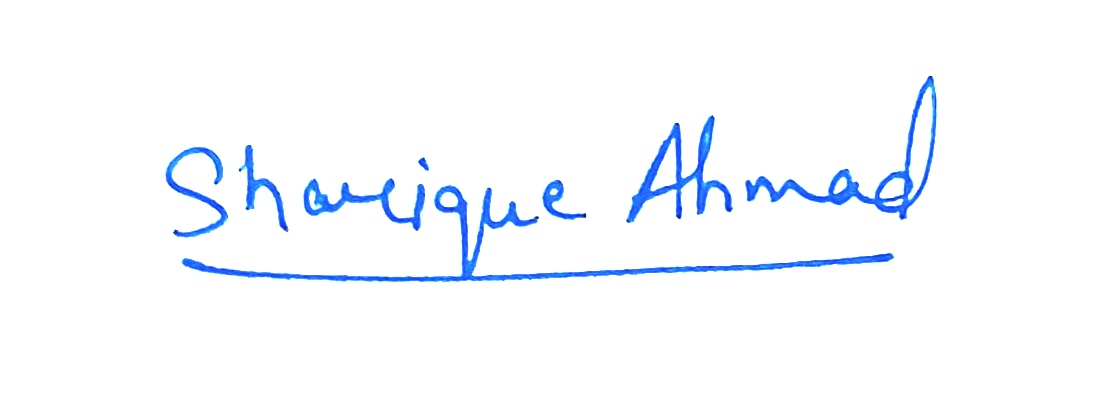 Sharique Ahmad